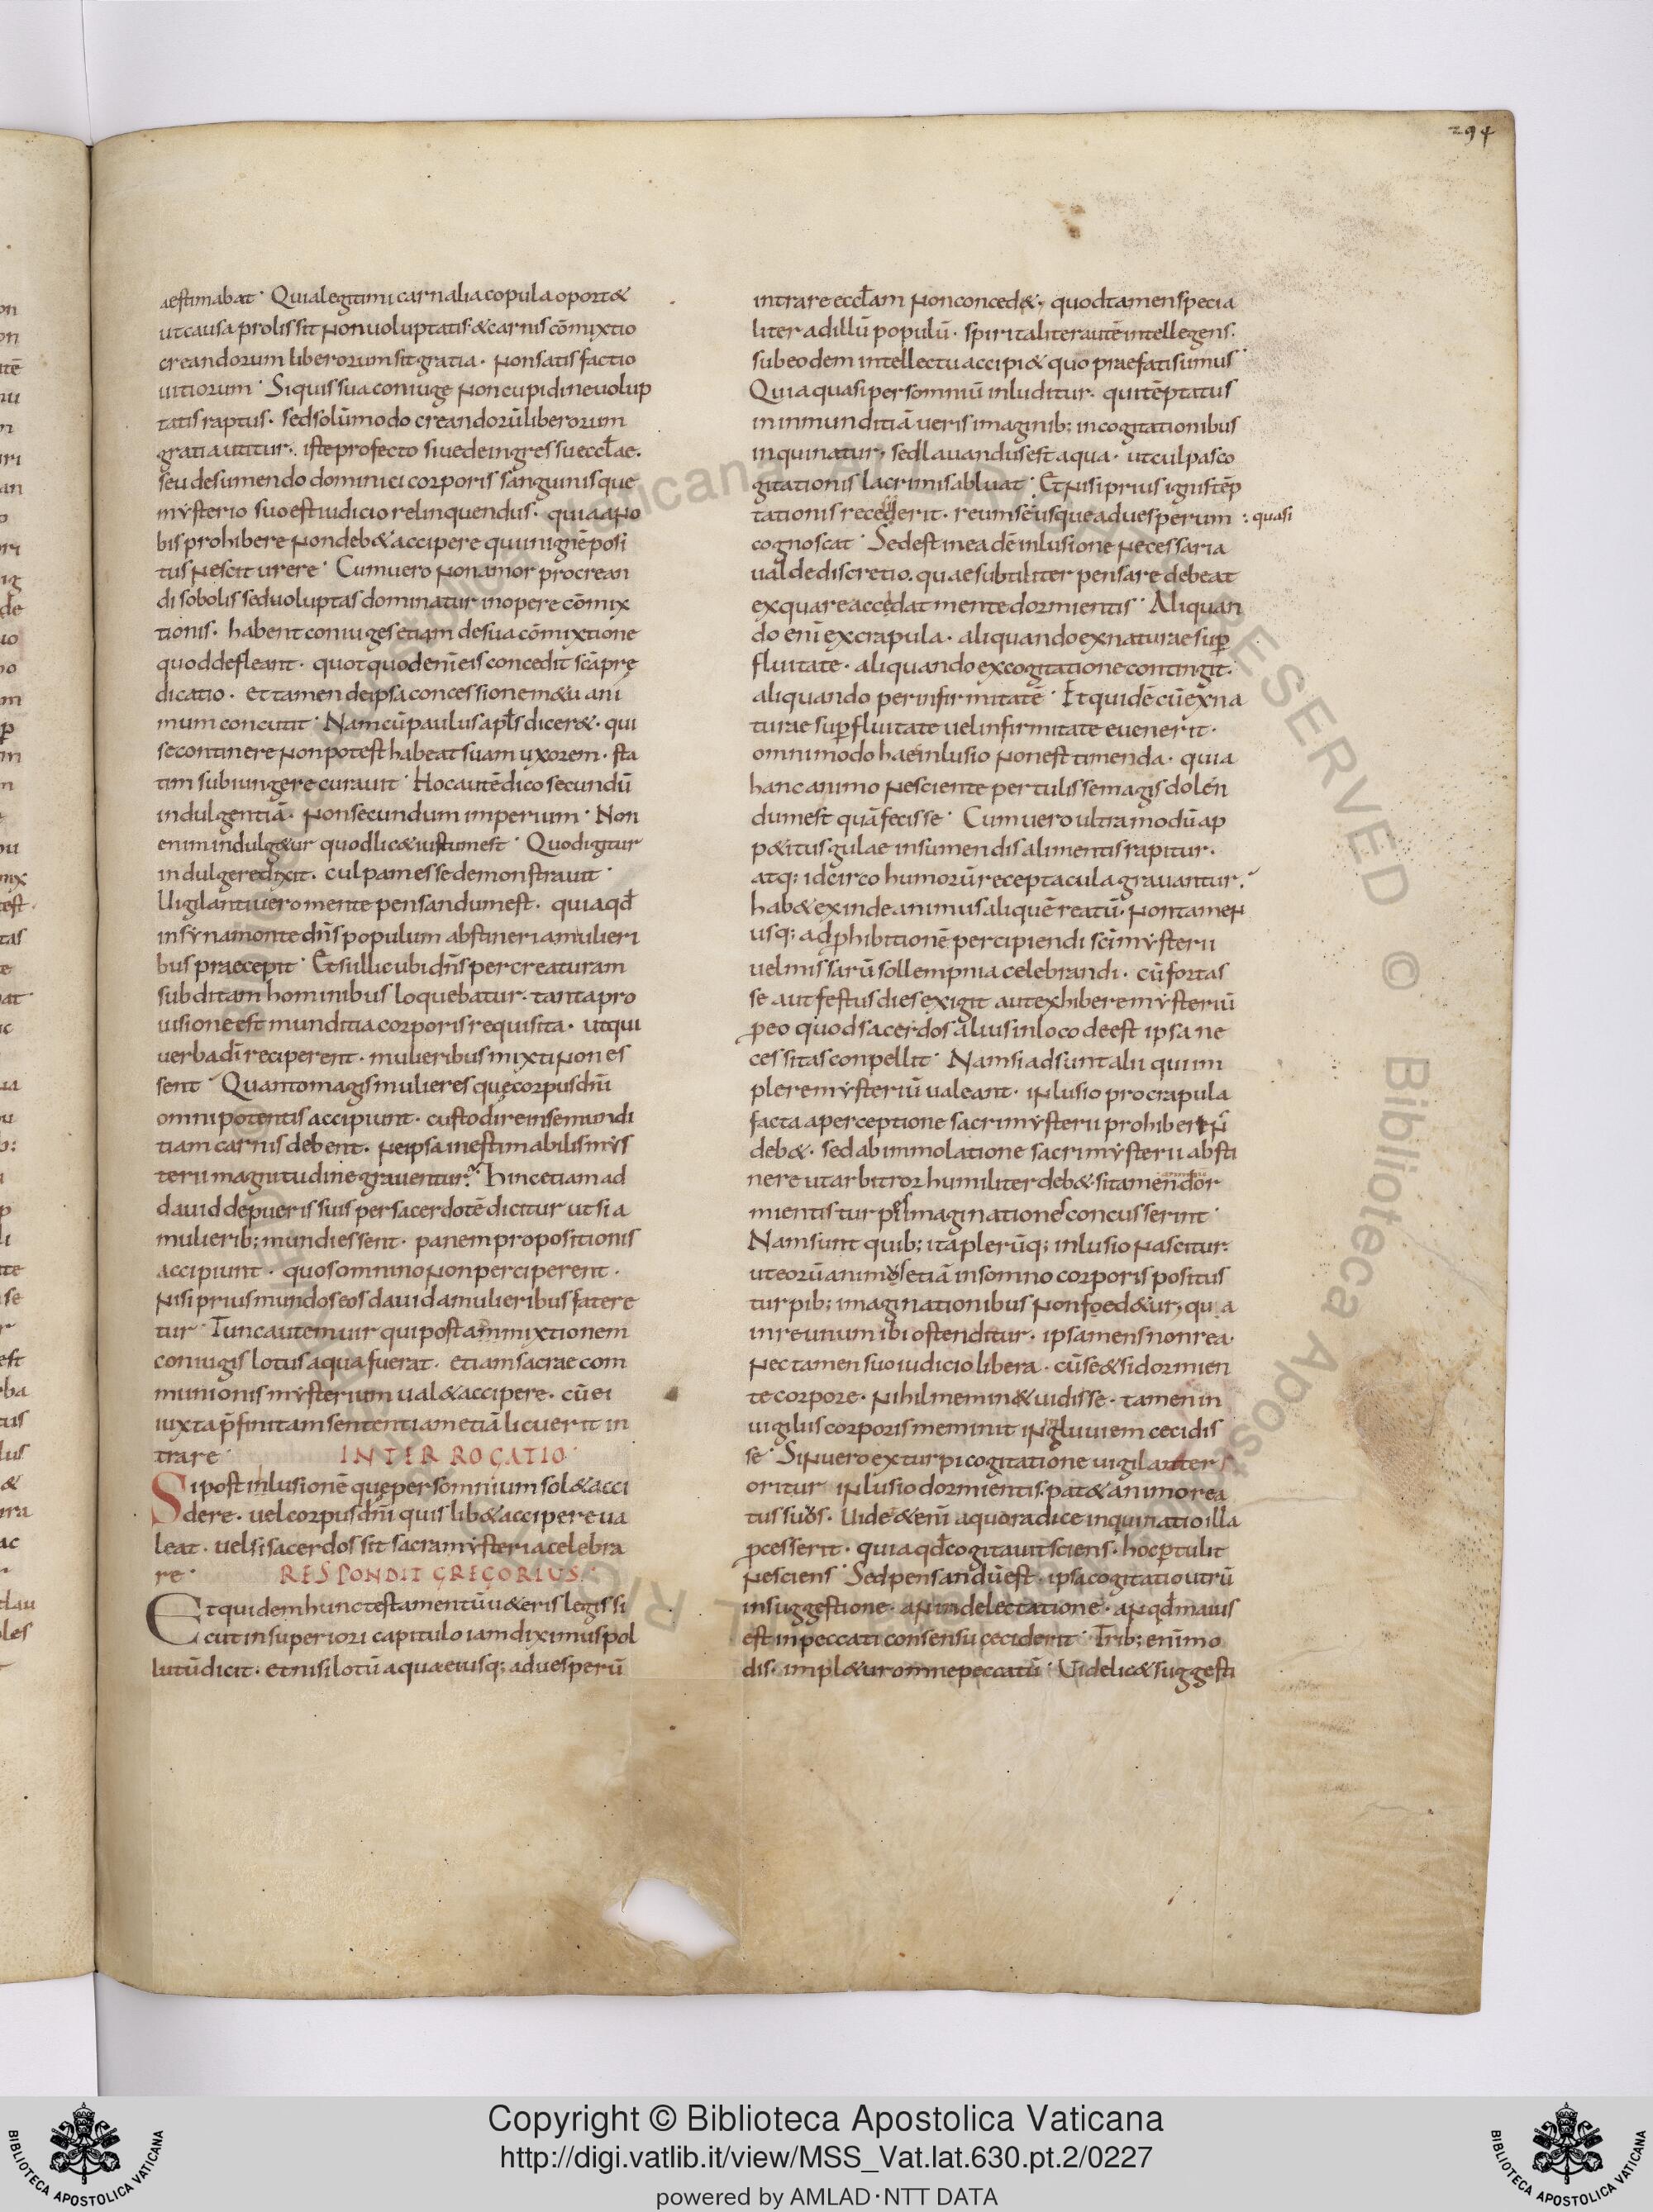 294
aestimabat· Quia legitimi carnalia copula oport&
ut causa prolis sit non uoluptatis· & carnis cōmixtio
creandorum liberorum sit gratia· non satis factio
uitiorum· Si quis sua coniuge non cupidine uolup
tatis raptus· sed solūmodo creandorū liberorum
gratia utitur· iste profecto siue de ingressu eccłae·
seu de sumendo dominici corporis sanguinisque
mysterio suo est iudicio relinquendus· quia a no
bis prohibere non deb& accipere qui in ignē posi
tus nescit urere· Cum uero non amor procrean
di sobolis sed uoluptas dominatur in opere cōmix
tionis· habent coniuges etiam de sua cōmixtione
quod defleant· quot quod enī eis concedit scā prę
dicatio· et tamen de ipsa concessione m&u ani
mum concutit· Nam cū paulus apłs dicer&· qui
se continere non potest habeat suam uxorem· sta
tim subiungere curauit· Hoc autē dico secundū
indulgentiā· non secundum imperium· Non
enim indulg&ur quod lic& iustum est· Quod igitur
indulgere dixit· culpam esse demonstrauit·
Uigilanti uero mente pensandum est· quia qđ
in syna monte dn̄s populum abstineri a mulieri
bus praecepit· Et si illic ubi dn̄s per creaturam
subditam hominibus loquebatur· tanta pro
uisione est munditia corporis requisita· ut qui
uerba dī reciperent· mulieribus mixti non es
sent· Quanto magis mulieres quę corpus dn̄i
omnipotentis accipiunt· custodire in se mundi
tiam carnis debent· ne ipsa inestimabilis mys
terii magnitudine grauentur· Hinc etiam ad
dauid de pueris suis per sacerdotē dicitur ut si a
mulierib; mundi essent· panem propositionis
accipiunt· quos omnino non perciperent·
nisi prius mundos eos dauid a mulieribus fatere
tur· Tunc autem uir qui post ammixtionem
coniugis lotus aqua fuerat· etiam sacrae com
munionis mysterium ual& accipere· cū ei
iuxta p̄finitam sententiam etiā licuerit in
trare· INTERROGATIO·
Si post inlusionē quę per somnium sol& acci
dere· uel corpus dn̄i quis lib& accipere ua
leat· uel si sacerdos sit sacra mysteria celebra
re· RESPONDIT GREGORIUS·
Et quidem hunc testamentū u&eris legis si
cut in superiori capitulo iam diximus pol
lutū dicit· et nisi lotū aqua ei usq; ad uesperū
intrare eccłam non conced&· quod tamen specia
liter ad illū populū· spiritaliter autē intellegens·
sub eodem intellectu accipi& quo praefati sumus·
Quia quasi per somniū inluditur· qui tēptatus
in inmunditiā ueris imaginib; in cogitationibus
inquinatur· sed lauandus est aqua· ut culpas co
gitationis lacrimis abluat· Et nisi prius ignis tēp
tationis recesserit· reum se usque ad uesperum :· quasi
cognoscat· Sed est in ea dē inlusione necessaria
ualde discretio· quae subtiliter pensare debeat
ex qua re accedat mente dormientis· Aliquan
do enī ex crapula· aliquando ex naturae sup
fluitate· aliquando ex cogitatione contingit·
aliquando per infirmitatē· Et quidē cū ex na
turae supfluitate uel infirmitate euenerit·
omnimodo haec inlusio non est timenda· quia
hanc animo nesciente pertulisse magis dolen
dum est quā fecisse· Cum uero ultra modū ap
p&itus gulae in sumendis alimentis rapitur·
atq; idcirco humorū receptacula grauantur·
hab& exinde animus aliquē reatū· non tamen
usq; ad phibitionē percipiendi sc̄i mysterii
uel missarū sollempnia celebrandi· cū fortas
se aut festus dies exigit aut exhibere mysteriū
p eo quod sacerdos alius in loco deest ipsa ne
cessitas conpellit· Nam si adsunt alii qui im
plere mysteriū ualeant· inlusio pro crapula
facta a perceptione sacri mysterii prohiberi n̄
deb&· sed ab immolatione sacri mysterii absti
nere ut arbitror humiliter deb& si tamen dor
mientis turpis imaginatione concusserint·
Nam sunt quib; ita plerūq; inlusio nascitur·
ut eorū animos etiā in somno corporis positus
turpib; imaginationibus non foed&ur· quia
in re unum ibi ostenditur· ipsa mens non rea·
nec tamen suo iudicio libera· cū se & si dormien
te corpore· nihil memin& uidisse· tamen in
uigiliis corporis meminit in gluuiem cecidis
se· Sin uero ex turpi cogitatione uigilanter
oritur inlusio dormientis· pat& animo rea
tus suos· Uid& enī a quo radice inquinatio illa
pcesserit· quia qđ cogitauit sciens· hoc ptulit
nesciens· Sed pensandū est· ipsa cogitatio utrū
in suggestione· an in delectatione· an qđ maius
est in peccati consensu ceciderit· Trib; enī mo
dis· impl&ur omne peccatū· Uidelic& suggesti
Copyright © Biblioteca Apostolica Vaticana
http://digi.vatlib.it/view/MSS_Vat.lat.630.pt.2/0227
powered by AMLAD·NTT DATA
BIBLIOTECA APOSTOLICA VATICANA
BIBLIOTECA APOSTOLICA VATICANA